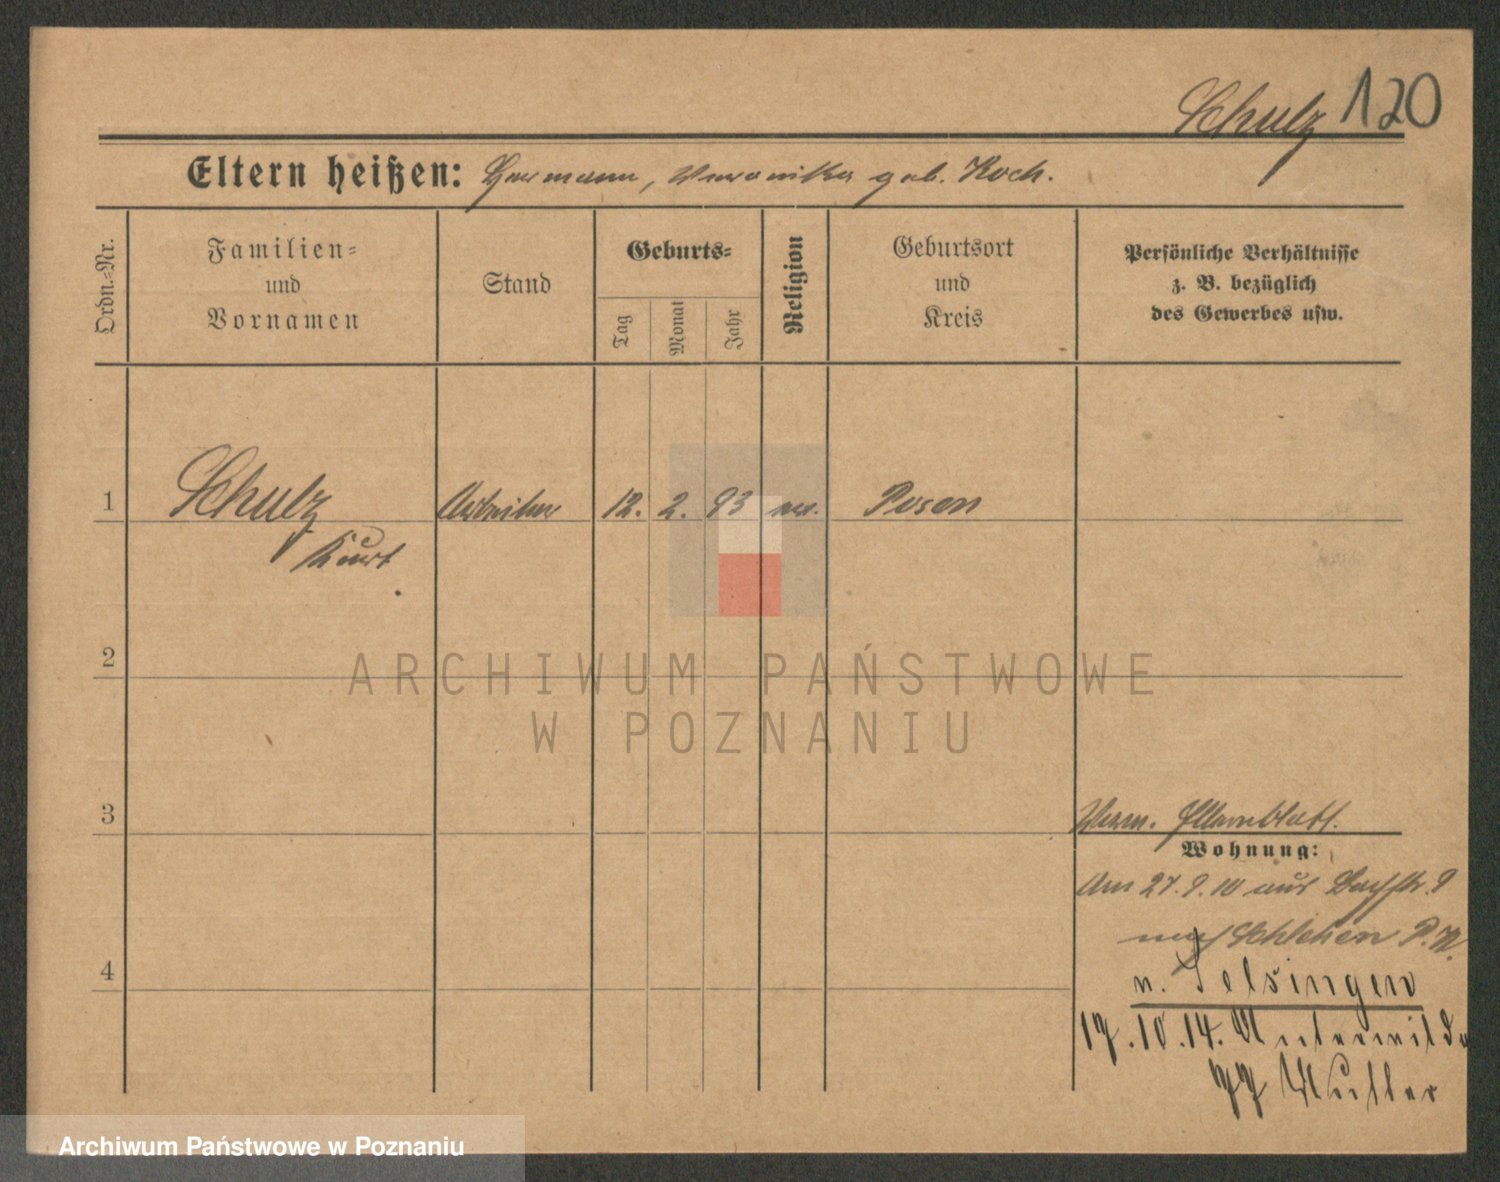 Schulz 120
Eltern heißen: Hermann, Veronika geb. Koch.
Ordn.-Nr.
Familien-
und
Vornamen
Stand
Geburts-
Tag
Monat
Jahr
Religion
Geburtsort
und
Kreis
Persönliche Verhältnisse
z. B. bezüglich
des Gewerbes usw.
1 Schulz Arbeiter 12. 2. 93 ev. Posen
Kurt
2
3
Verm.
Wohnung:
Am 27.9.10 aus 9
nach Schlehen P. W.
n.
17.10.14. Unterwilda
77 Mutter
4
ARCHIWUM PAŃSTWOWE
W POZNANIU
Archiwum Państwowe w Poznaniu